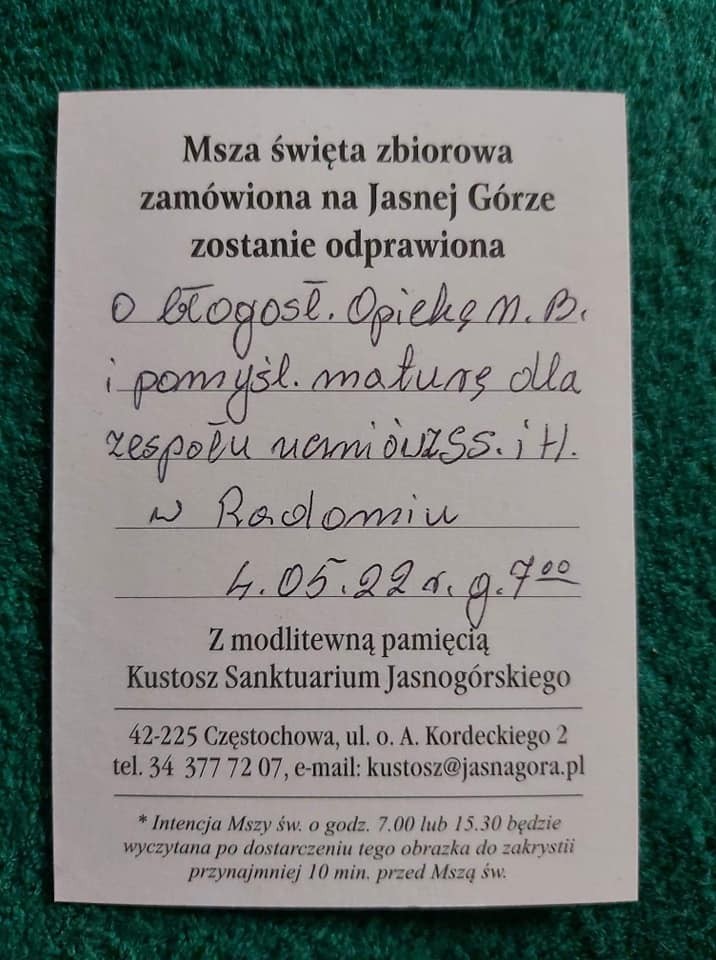 Msza święta zbiorowa
zamówiona na Jasnej Górze
zostanie odprawiona
o błogosł. Opiekę M. B.
i pomyśl. maturę dla
zespołu uczniów ZSS. i H.
w Radomiu
4.05.22 r. g. 7⁰⁰
Z modlitewną pamięcią
Kustosz Sanktuarium Jasnogórskiego
42-225 Częstochowa, ul. o. A. Kordeckiego 2
tel. 34 377 72 07, e-mail: kustosz@jasnagora.pl
* Intencja Mszy św. o godz. 7.00 lub 15.30 będzie
wyczytana po dostarczeniu tego obrazka do zakrystii
przynajmniej 10 min. przed Mszą św.